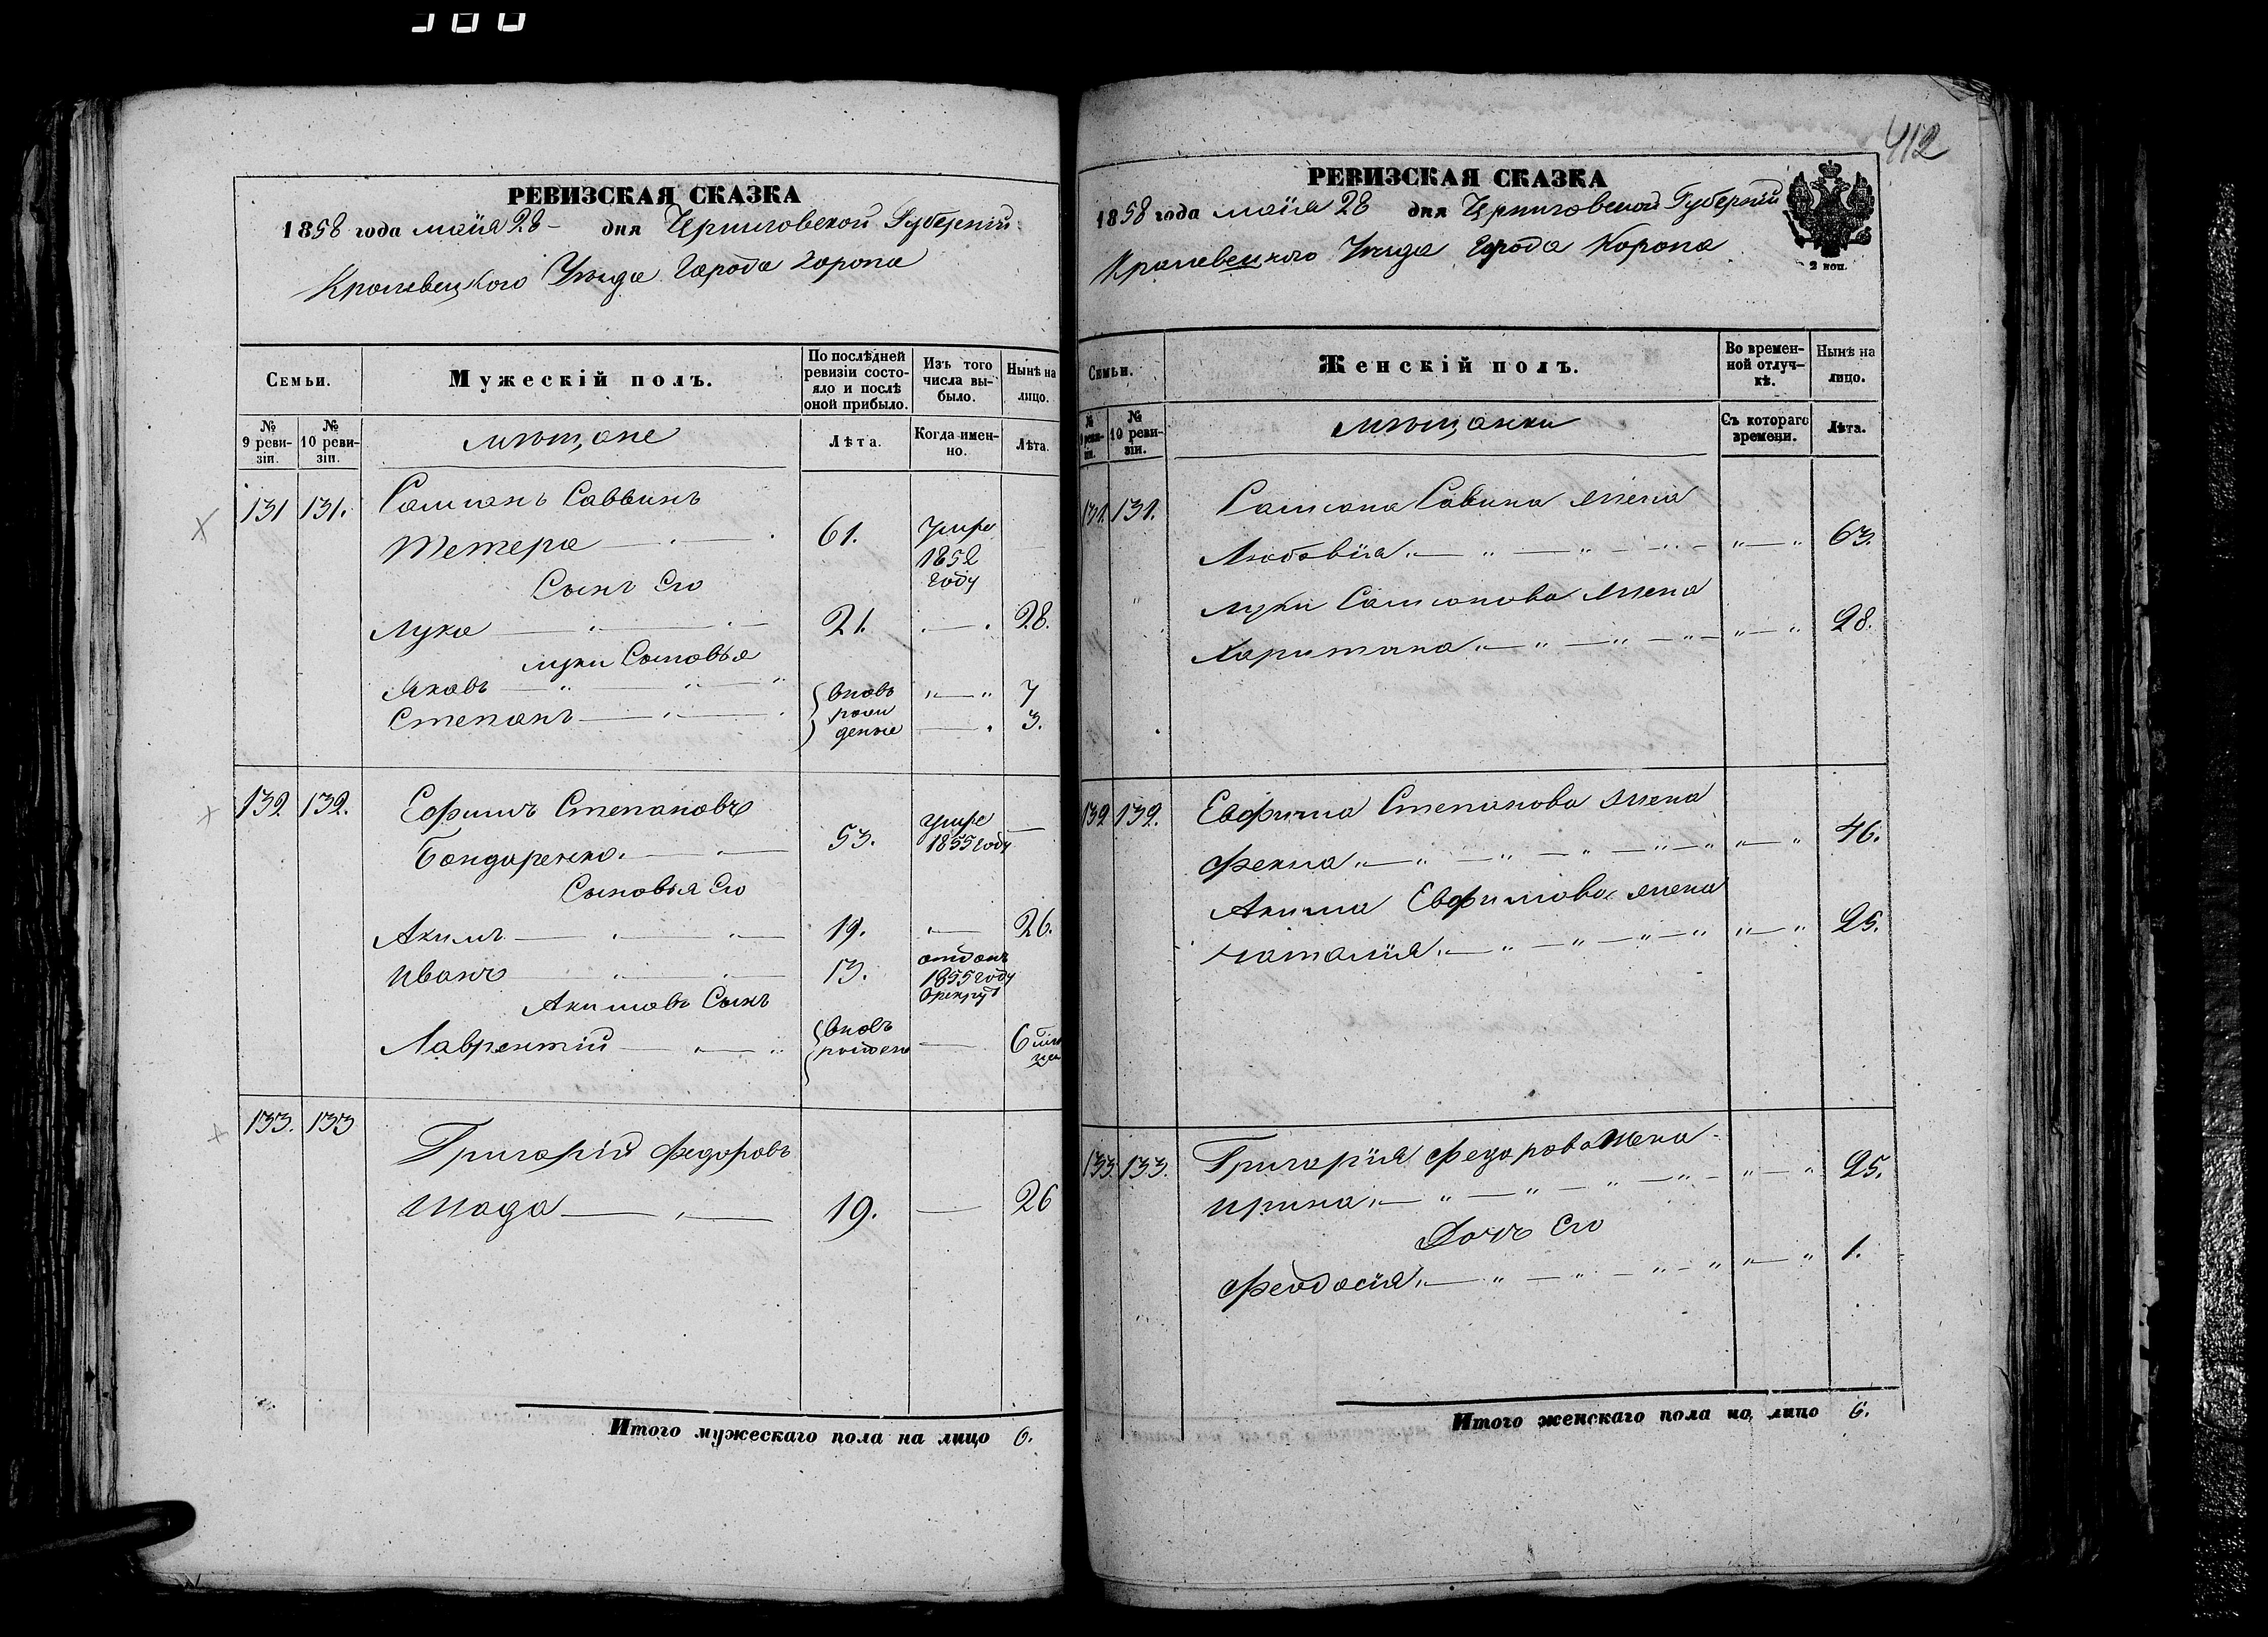 412
РЕВИЗСКАЯ СКАЗКА
1858 года маія 28 дня Черниговской Губерніи
Кролевецкого Уѣзда Города Коропа
Семьи.
Мужескій полъ.
По послѣдней ревизіи состояло и послѣ оной прибыло.
Изъ того числа выбыло.
Нынѣ на лицо.
№ 9 ревизіи.
№ 10 ревизіи.
мѣщане
Лѣта.
Когда именно.
Лѣта.
131 131. Самсонъ Саввинъ
Тетера 61. Умре 1852 году
Сынъ Его
Лука 21. 28.
Луки Сыновья
Яковъ вновь рож 7
Степанъ денные 3.
132 132. Ефимъ Степановъ
Бондаренко. 53. умре 1855 году
Сыновья Его
Акимъ 19. 26.
Иванъ 13. отданъ 1855 году в рекрут
Акимовъ Сынъ
Лаврентій вновь рожден 6
133. 133 Григорій Федоровъ
19. 26
Итого мужескаго пола на лицо 6.
РЕВИЗСКАЯ СКАЗКА
1858 года маія 28 дня Черниговской Губерніи
Кролевецкого Уѣзда Города Коропа
2 коп.
Семьи.
Женскій полъ.
Во временной отлучкѣ.
Нынѣ на лицо.
№ 9 ревизіи.
№ 10 ревизіи.
мѣщанки
Съ котораго времени.
Лѣта.
131. 131. Самсона Савина жена
Любовія 63.
Луки Самсонова жена
Харитина 28.
132 132. Евфима Степанова жена
Фекла 46.
Акима Евфимова жена
Наталія 25.
133. 133. Григорія Федорова Жена
Ирина 25.
Дочь Его
Феодосія 1.
Итого женскаго пола на лицо 6.